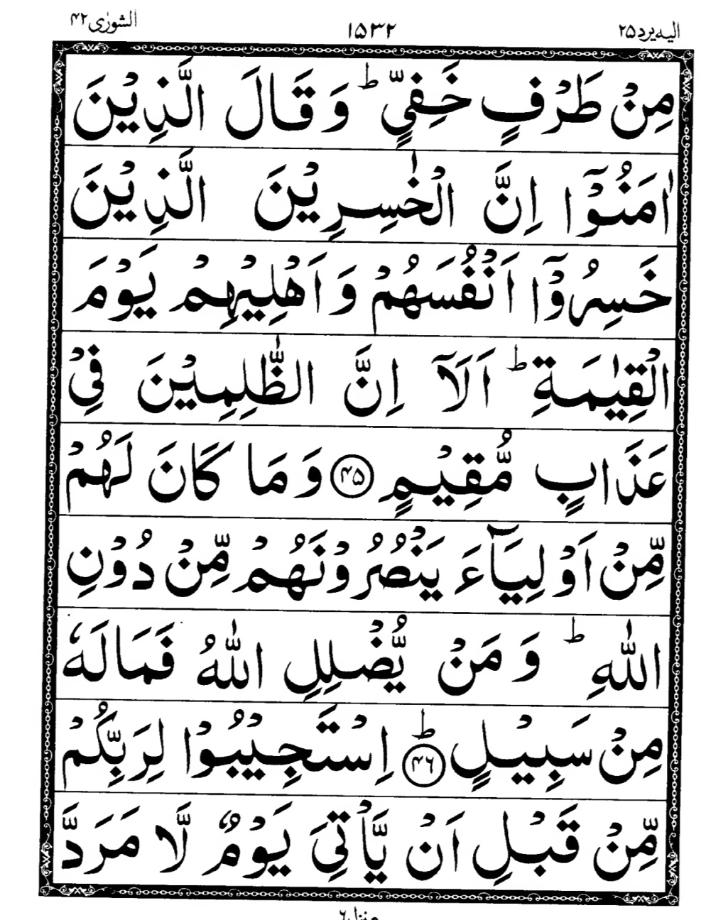 الشورٰى ۴۲ ۱۵۳۲ اليه يرد ۲۵
مِنْ طَرْفٍ خَفِيٍّ ؕ وَقَالَ الَّذِيْنَ
اٰمَنُوْۤا اِنَّ الْخٰسِرِيْنَ الَّذِيْنَ
خَسِرُوْۤا اَنْفُسَهُمْ وَاَهْلِيْهِمْ يَوْمَ
الْقِيٰمَةِ ؕ اَلَاۤ اِنَّ الظّٰلِمِيْنَ فِيْ
عَذَابٍ مُّقِيْمٍ ﴿۴۵﴾ وَمَا كَانَ لَهُمْ
مِّنْ اَوْلِيَآءَ يَنْصُرُوْنَهُمْ مِّنْ دُوْنِ
اللّٰهِ ؕ وَمَنْ يُّضْلِلِ اللّٰهُ فَمَا لَهٗ
مِنْ سَبِيْلٍ ؕ﴿۴۶﴾ اِسْتَجِيْبُوْا لِرَبِّكُمْ
مِّنْ قَبْلِ اَنْ يَّاْتِيَ يَوْمٌ لَّا مَرَدَّ
منزل ۶